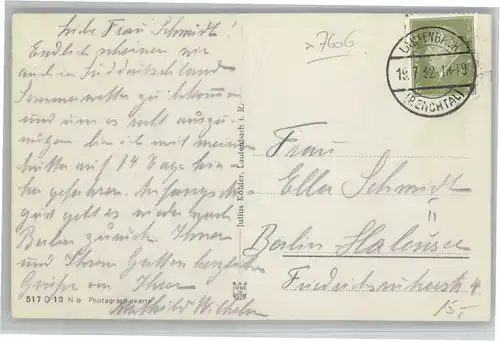 Liebe Frau Schmidt!
Endlich scheinen wir
auch in Süddeutschland
Sommerwetter zu bekommen
und um es recht auszu-
nützen bin ich mit meiner
Mutter auf 14 Tage hie-
her gefahren. Anfang Au-
gust geht es wieder nach
Berlin zurück. Ihnen
und Ihrem Gatten herzliche
Grüße von Ihrer
Mathild Wilhelm
517 D 13 N e Photographiekarte
Julius Köhler, Lautenbach i. R.
a 7606
LAUTENBACH
19.7.32.18-19
(RENCHTAL)
Frau
Ella Schmidt
Berlin Halensee
Friedrichsruherstr. 4
15,-